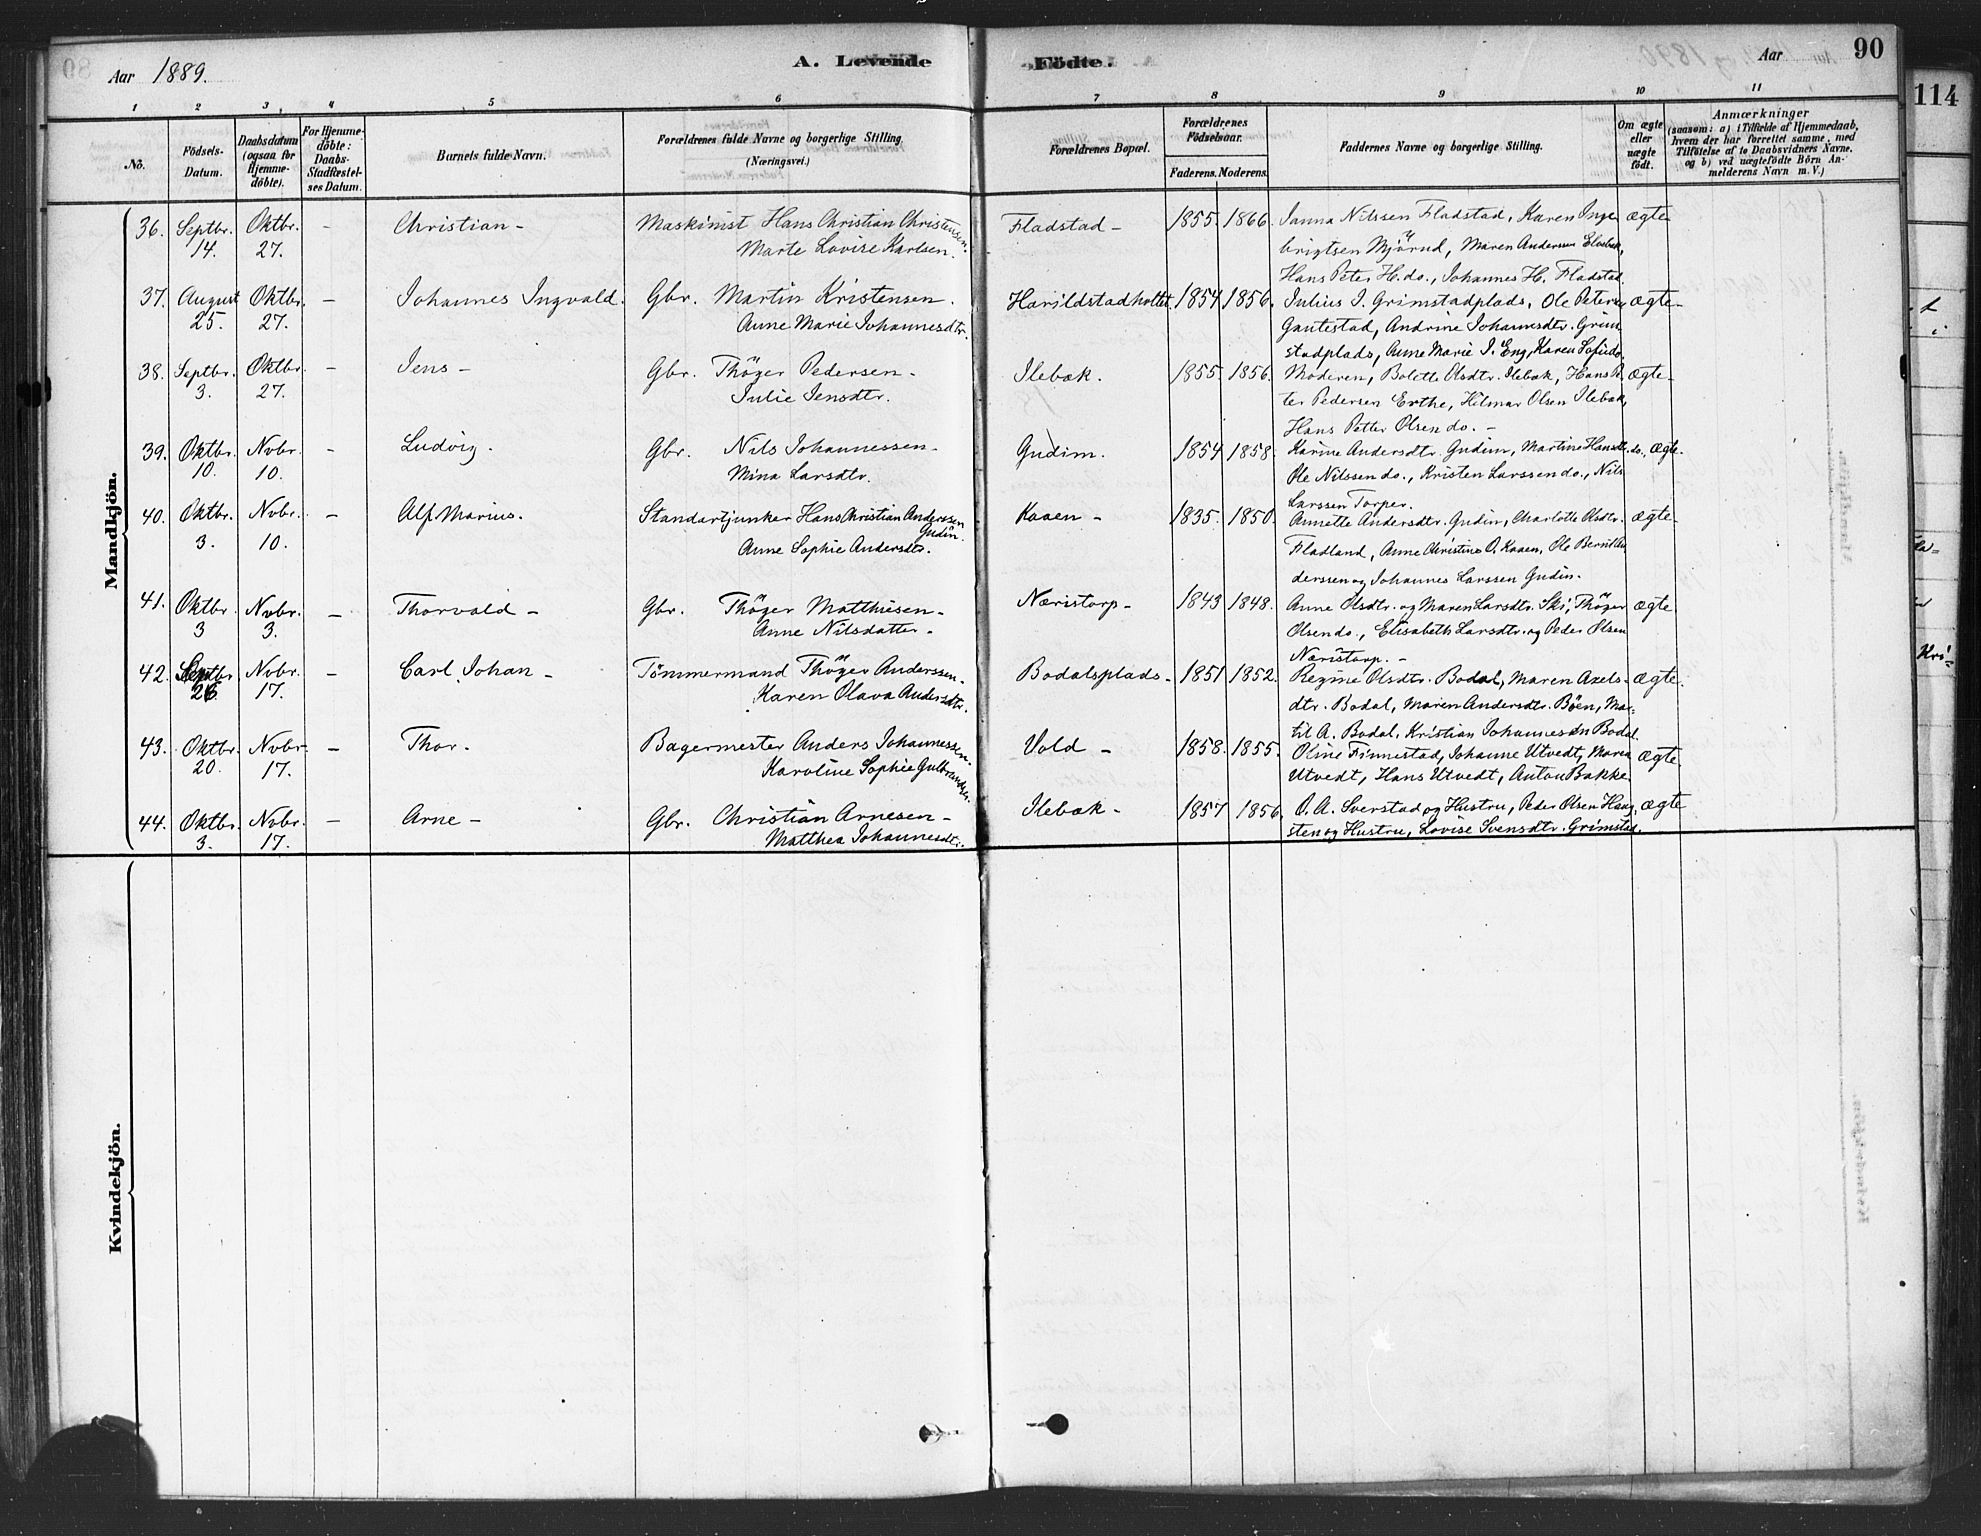 Aar 1889.
A. Levende
Födte.
Aar
90
114
1 2 3 4 5 6 7 8 9 10 11
No.
Födsels-Datum.
Daabsdatum (ogsaa for Hjemme-döbte).
For Hjemme-döbte: Daabs-Stadfæstel-ses Datum.
Barnets fulde Navn.
Forældrenes fulde Navne og borgerlige Stilling.
(Næringsvei.)
Forældrenes Bopæl.
Forældrenes Födselsaar.
Faderens. Moderens.
Faddernes Navne og borgerlige Stilling.
Om ægte eller uægte födt.
Anmærkninger
(saasom: a) i Tilfælde af Hjemmedaab,
hvem der har forrettet samme, med
Tilföielse af to Daabsvidners Navne.
og b) ved uægtefödte Börn An-
melderens Navn m. V.)
Mandkjön.
36. Septbr. 14. Oktbr. 27. - Christian - Maskinist Hans Christian Christensen.
Marte Lovise Karlsen.
Fladstad - 1855. 1866. Janna Nilssen Fladstad, Karen Inge- ægte
brigtsen Mjörud, Maren Andersen Elvebak,
Hans Peter H. do., Johannes H. Fladstad.
37. August 25. Oktbr. 27. - Johannes Ingvald. Gbr. Martin Kristensen.
Anne Marie Johannesdtr.
Harildstadholtet. 1854 1856. Julius J. Grimstadplads, Ole Petersen ægte-
Gautestad, Andrine Johannsdtr. Grim-
stadplads, Anne Marie J. Eng, Karen Sofie do.
38. Septbr. 3. Oktbr. 27. - Jens - Gbr. Thöger Pedersen -
Julie Jensdtr.
Ilebæk. 1855. 1856. Moderen, Bolette Olsdtr. Ilebæk, Hans Pe- ægte-
ter Pedersen Erthe, Hilmar Olsen Ilebæk,
Hans Petter Olsen do. -
39. Oktbr. 10. Nvbr. 10. - Ludvig. Gbr. Nils Johannessen -
Mina Larsdtr.
Gudim. 1854 1858. Karine Andersdtr. Gudim, Martine Hansdtr. do., ægte-
Ole Nilssen do., Kristen Larssen do., Nils
Larssen Torper.
40. Oktbr. 3. Nvbr. 10. - Alf Marius. Standartjunker Hans Christian Andersen Gudim.
Anne Sophie Andersdtr.
Kaaen - 1835. 1850. Annette Andersdtr. Gudim, Charlotte Olsdtr. ægte-
Fladland, Anne Christine O. Kaaen, Ole Bernt An-
derssen og Johannes Larssen Gudim.
41. Oktbr. 3 Nvbr. 3. - Thorvald - Gbr. Thöger Matthiesen -
Anne Nilsdatter -
Næristorp - 1843 1848. Anne Olsdtr. og Maren Larsdtr. Ski, Thöger ægte
Olsen do., Elisabeth Larsdtr. og Peder Olsen
Næristorp. -
42. Septbr. 26. Nvbr. 17. - Carl Johan - Tömmermand Thöger Anderssen.
Karen Olava Andersdtr.
Bodalsplads - 1851 1852. Regine Olsdtr. Bodal, Maren Axels- ægte.
dtr. Bodal, Maren Andersdtr. Böen, Mar-
til A. Bodal, Kristian Johannessen Bodal.
43. Oktbr. 20. Nvbr. 17. - Thor. Bagermester Anders Johannessen.
Karoline Sophie Gulbrandsdtr.
Vold - 1858. 1855. Oline Finnestad, Johanne Utvedt, Maren ægte
Utvedt, Hans Utvedt, Anton Bakke
44. Oktbr. 3. Nvbr. 17. - Arne - Gbr. Christian Arnesen -
Matthea Johannesdtr.
Ilebæk - 1857 1856. O. A. Sverstad og Hustru, Peder Olsen Haug- ægte
sten og Hustru, Lovise Svensdtr. Grimstad.
Kvindekjön.